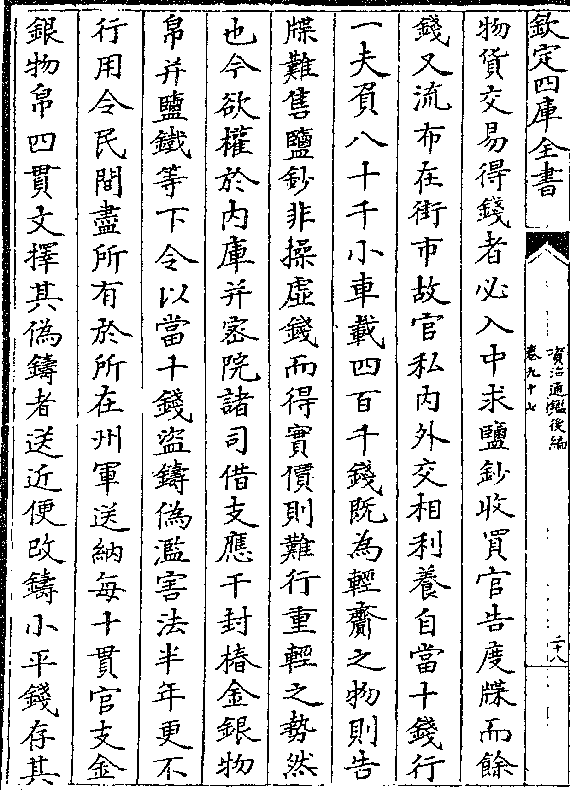 欽定四庫全書
資治通鑑後編
卷九十七
二十八
物貨交易得錢者必入中求鹽鈔收買官告度牒而餘
錢又流布在街市故官私內外交相利養自當十錢行
一夫負八十千小車載四百千錢既為輕齎之物則告
牒難售鹽鈔非操虛錢而得實價則難行重輕之勢然
也今欲權於內庫并宻院諸司借支應干封樁金銀物
帛并鹽鐵等下令以當十錢盜鑄偽濫害法半年更不
行用令民間盡所有於所在州軍送納每十貫官支金
銀物帛四貫文擇其偽鑄者送近便改鑄小平錢存其